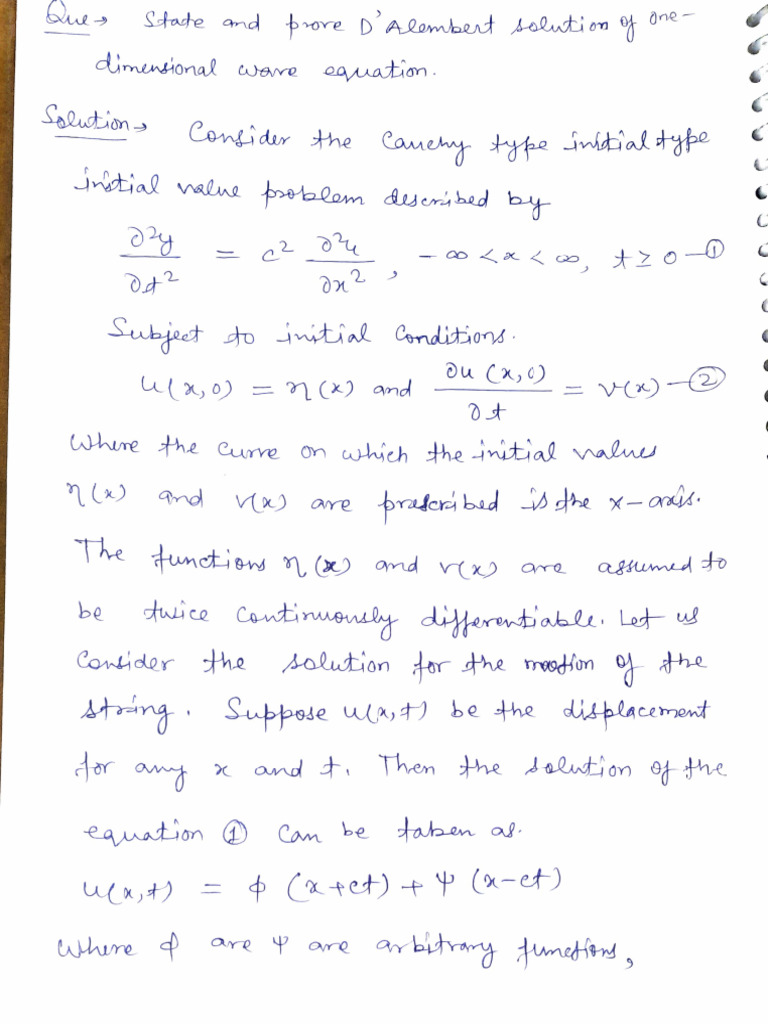 Que → State and prove D'Alembert solution of one-
dimensional wave equation.
Solution → Consider the Cauchy type initial type
initial value problem described by
∂²y/∂t² = c² ∂²u/∂x², -∞ < x < ∞, t ≥ 0 — ①
Subject to initial conditions.
u(x,0) = η(x) and ∂u(x,0)/∂t = v(x) — ②
Where the curve on which the initial values
η(x) and v(x) are prescribed is the x-axis.
The functions η(x) and v(x) are assumed to
be twice continuously differentiable. Let us
Consider the solution for the motion of the
string. Suppose u(x,t) be the displacement
for any x and t. Then the solution of the
equation ① can be taken as.
u(x,t) = ϕ (x+ct) + ψ (x-ct)
Where ϕ are ψ are arbitrary functions,